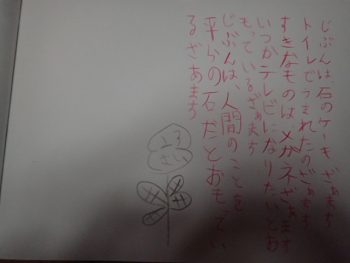 じぶんは、石のケーキ ざぁます
トイレでうまれたのざぁます
すきなものは メガネざぁます
いつかテレビになりたいとお
もっているざぁます
じぶんは 人間のことを
平らの石だとおもってい
るざあます
うる
さい